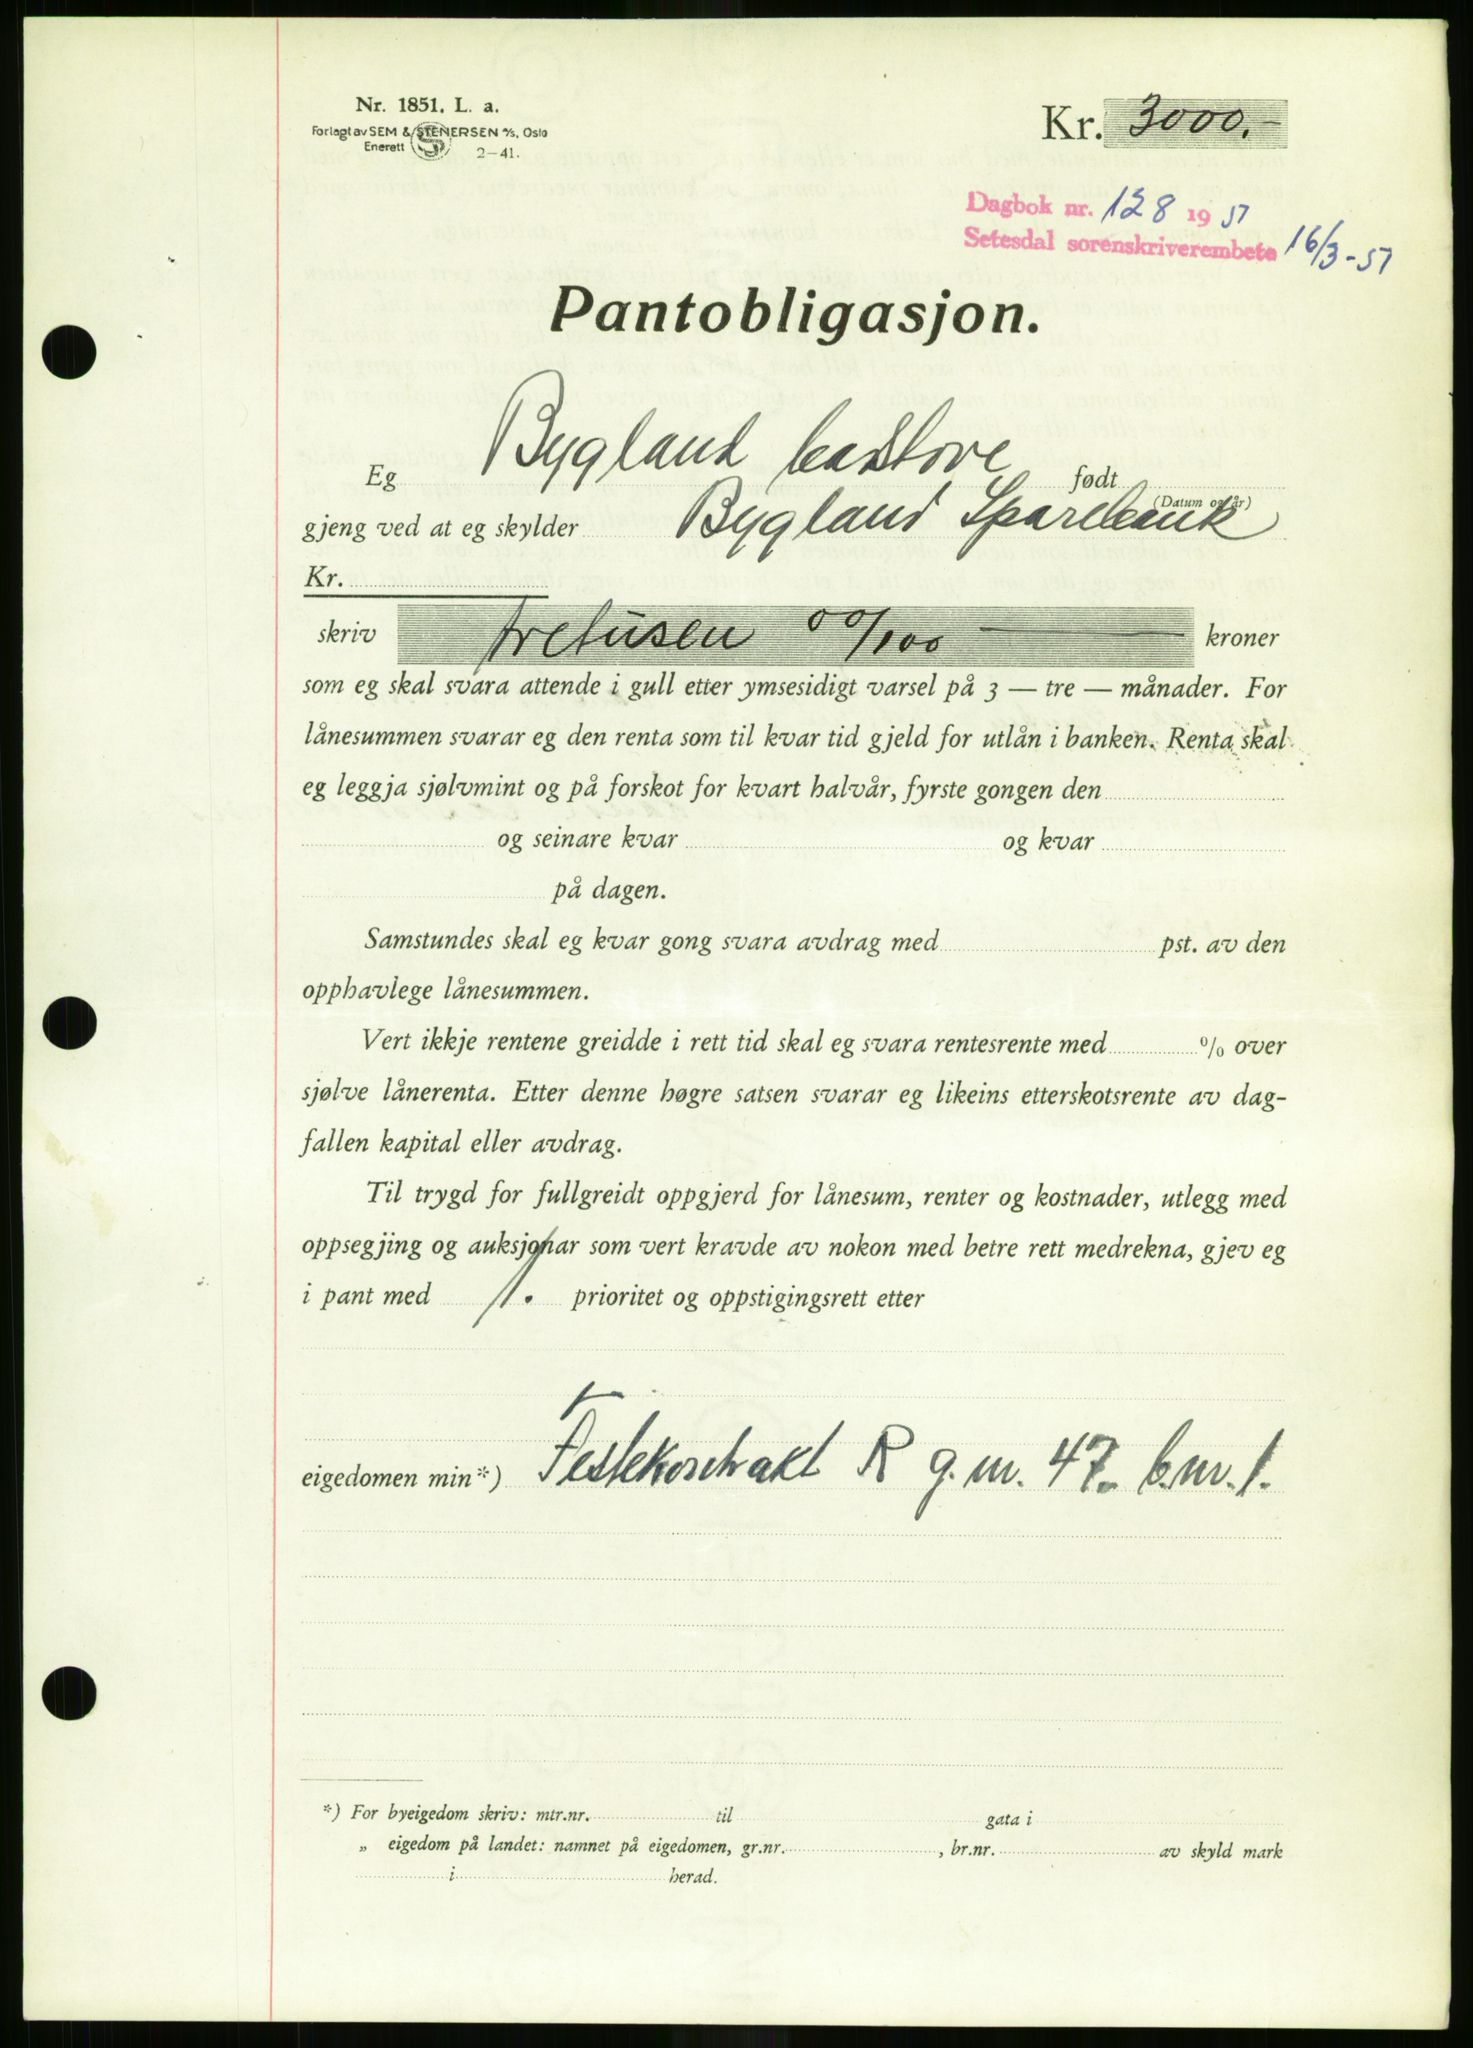 Nr. 1851. L. a.
Forlagt av SEM & STENERSEN A/S, Oslo
Enerett
S
2-41.
Kr. 3000.-
Dagbok nr. 128 1951
Setesdal sorenskriverembete 16/3-51
Pantobligasjon.
Eg Bygland badstove født
(Datum og år)
gjeng ved at eg skylder Bygland Sparebank
Kr.
skriv tretusen 00/100 — kroner
som eg skal svara attende i gull etter ymsesidigt varsel på 3 — tre — månader. For
lånesummen svarar eg den renta som til kvar tid gjeld for utlån i banken. Renta skal
eg leggja sjølvmint og på forskot for kvart halvår, fyrste gongen den
og seinare kvar og kvar
på dagen.
Samstundes skal eg kvar gong svara avdrag med pst. av den
opphavlege lånesummen.
Vert ikkje rentene greidde i rett tid skal eg svara rentesrente med % over
sjølve lånerenta. Etter denne høgre satsen svarar eg likeins etterskotsrente av dag-
fallen kapital eller avdrag.
Til trygd for fullgreidt oppgjerd for lånesum, renter og kostnader, utlegg med
oppsegjing og auksjonar som vert kravde av nokon med betre rett medrekna, gjev eg
i pant med 1. prioritet og oppstigingsrett etter
eigedomen min*) Festekontrakt R g.nr. 47. b.nr. 1.
*) For byeigedom skriv: mtr.nr. til gata i
„ eigedom på landet: namnet på eigedomen, gr.nr. , br.nr. av skyld mark
i herad.